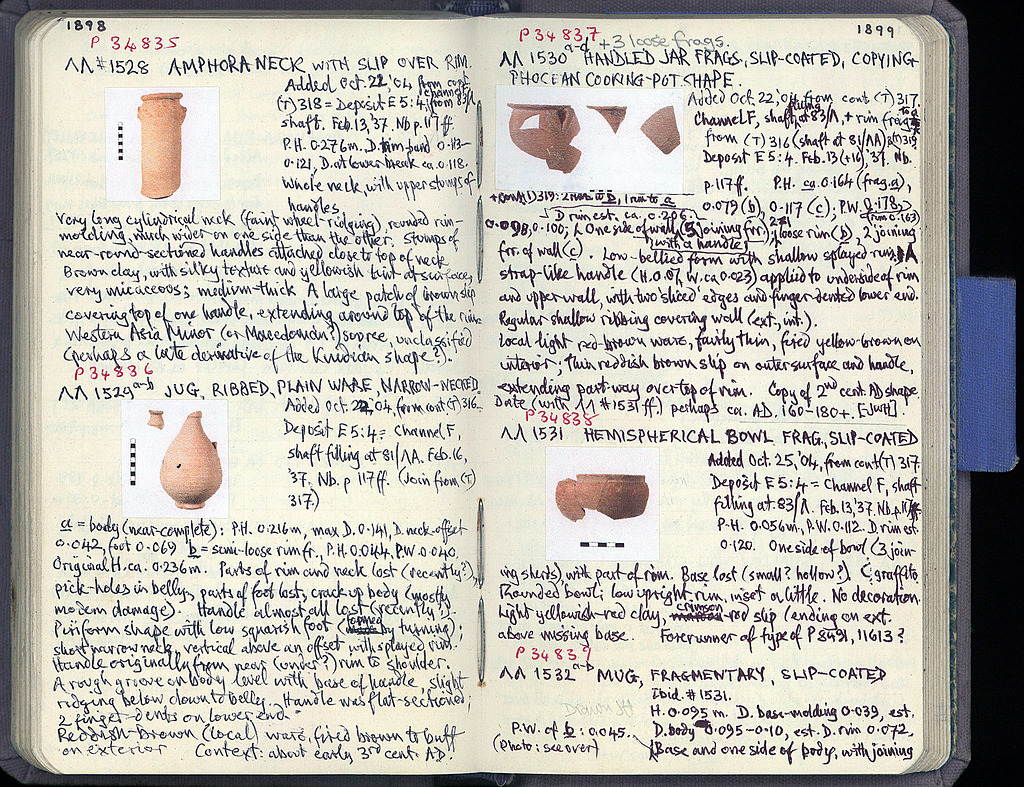 1898
P 34835
ΛΛ #1528 AMPHORA NECK WITH SLIP OVER RIM.
Added Oct. 22, '04 from cont.
(T) 318 = Deposit E 5:4, from 83/Λ
shaft. Feb. 13, '37. Nb p. 117 ff.
P.H. 0.276m. D. rim-band 0.113-
0.121, D. at lower break ca. 0.118.
Whole neck, with upper stumps of
handles.
Very long cylindrical neck (faint wheel-ridging), rounded rim-
molding, much wider on one side than the other. Stumps of
near-round-sectioned handles attached close to top of neck.
Brown clay, with silky texture and yellowish tint at surface,
very micaceous; medium-thick. A large patch of brown slip
covering top of one handle, extending around top of the rim.
Western Asia Minor (or Macedonian?) source, unclassified
(perhaps a late derivative of the Knidian shape?).
P 34836
ΛΛ 1529 a-b JUG, RIBBED, PLAIN WARE, NARROW-NECKED.
Added Oct. 22, '04, from cont (T) 316.
Deposit E 5:4 = Channel F,
shaft filling at 81/ΛΛ. Feb. 16,
'37. Nb. p 117 ff. (Join from (T)
317.)
a = body (near-complete): P.H. 0.216m, max D. 0.141, D. neck-offset
0.042, foot 0.069 b = semi-loose rim fr., P.H. 0.044, P.W. 0.040.
Original H. ca. 0.236m. Parts of rim and neck lost (recently?),
pick-holes in belly, parts of foot lost, crack up body (mostly
modern damage). Handle almost all lost (recently?).
Piriform shape with low squarish foot (formed by turning);
short narrow neck, vertical above an offset with splayed rim.
Handle originally from near (under?) rim to shoulder.
A rough groove on body level with base of handle, slight
ridging below down to belly. Handle was flat-sectioned;
2 finger-dents on lower end.
Reddish-brown (local) ware, fired brown to buff
on exterior Context: about early 3rd cent. A.D.
1899
P 34837
a-d + 3 loose frags.
ΛΛ 1530 HANDLED JAR FRAGS, SLIP-COATED, COPYING
PHOCEAN COOKING-POT SHAPE.
Added Oct. 22, '04, from cont (T) 317.
Channel F, shaft filling at 83/Λ, + rim frag
from (T) 316 (shaft at 81/ΛΛ)
Deposit E 5:4. Feb. 13 (+16), '37. Nb.
p. 117 ff. P.H. ca. 0.164 (frag. a),
0.079 (b), 0.117 (c); P.W. 0.178,
D rim est. ca. 0.206. (rim 0.163)
0.098, 0.100; One side of wall (5 joining frr.) loose rim (b), 2 joining
with a handle
frr. of wall (c). Low-bellied form with shallow splayed rim. A
strap-like handle (H. 0.07, W. ca 0.023) applied to underside of rim
and upper wall, with two sliced edges and finger-dented lower end.
Regular shallow ribbing covering wall (ext., int.).
Local light red-brown ware, fairly thin, fired yellow-brown on
interior; thin reddish brown slip on outer surface and handle,
extending part-way over top of rim. Copy of 2nd cent. AD shape.
Date (with ΛΛ #1531 ff.) perhaps ca. A.D. 160-180+. [JWH].
P 34838
ΛΛ 1531 HEMISPHERICAL BOWL FRAG., SLIP-COATED
Added Oct. 25, '04, from cont (T) 317.
Deposit E 5:4 = Channel F, shaft
filling at 83/Λ. Feb. 13, '37. Nb. p. 117 ff.
P.H. 0.056m, P.W. 0.112. D. rim est.
0.120. One side of bowl (3 join-
ing sherds) with part of rim. Base lost (small? hollow?). Graffito.
Rounded bowl; low upright rim, inset a little. No decoration.
Light yellowish-red clay, crimson-red slip (ending on ext.
above missing base. Forerunner of type of P 8491, 11613?
P 34839
ΛΛ 1532 a-b MUG, FRAGMENTARY, SLIP-COATED
Ibid. # 1531.
Drawn
H. 0.095 m. D. base-molding 0.039, est.
P.W. of b: 0.045. D. body 0.095-0.10, est. D. rim 0.072,
(Photo: see over) Base and one side of body, with joining